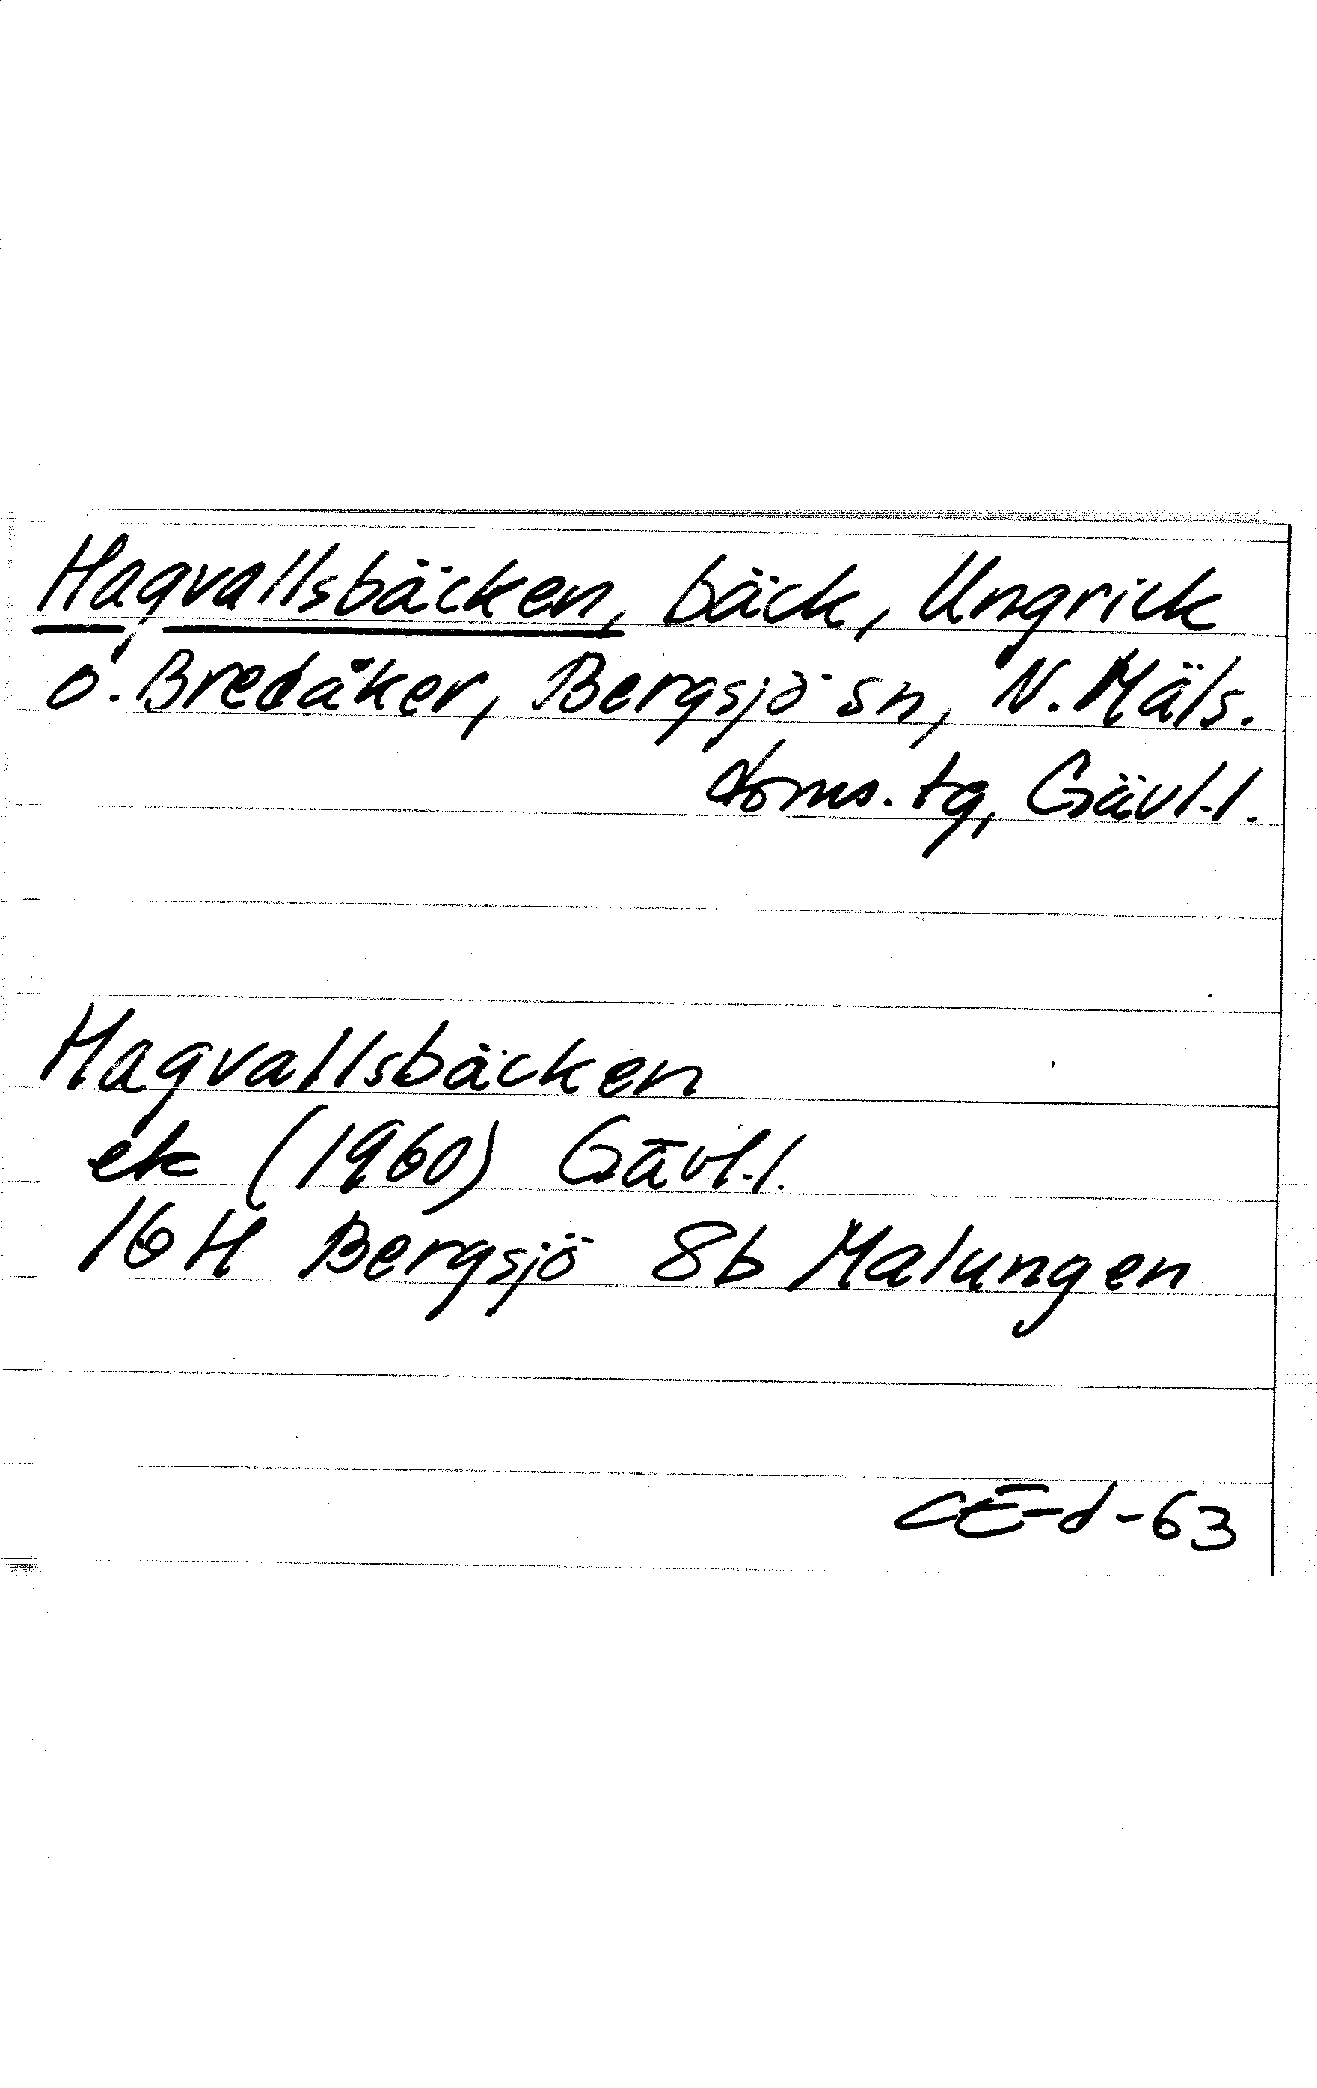 Hagvallsbäcken, bäck, Ungrick
o. Bredåker, Bergsjö sn, N. Häls.
doms. tg, Gävl.l.
Hagvallsbäcken
ek (1960) Gävl.l.
16 H Bergsjö 8b Malungen
CE-d-63